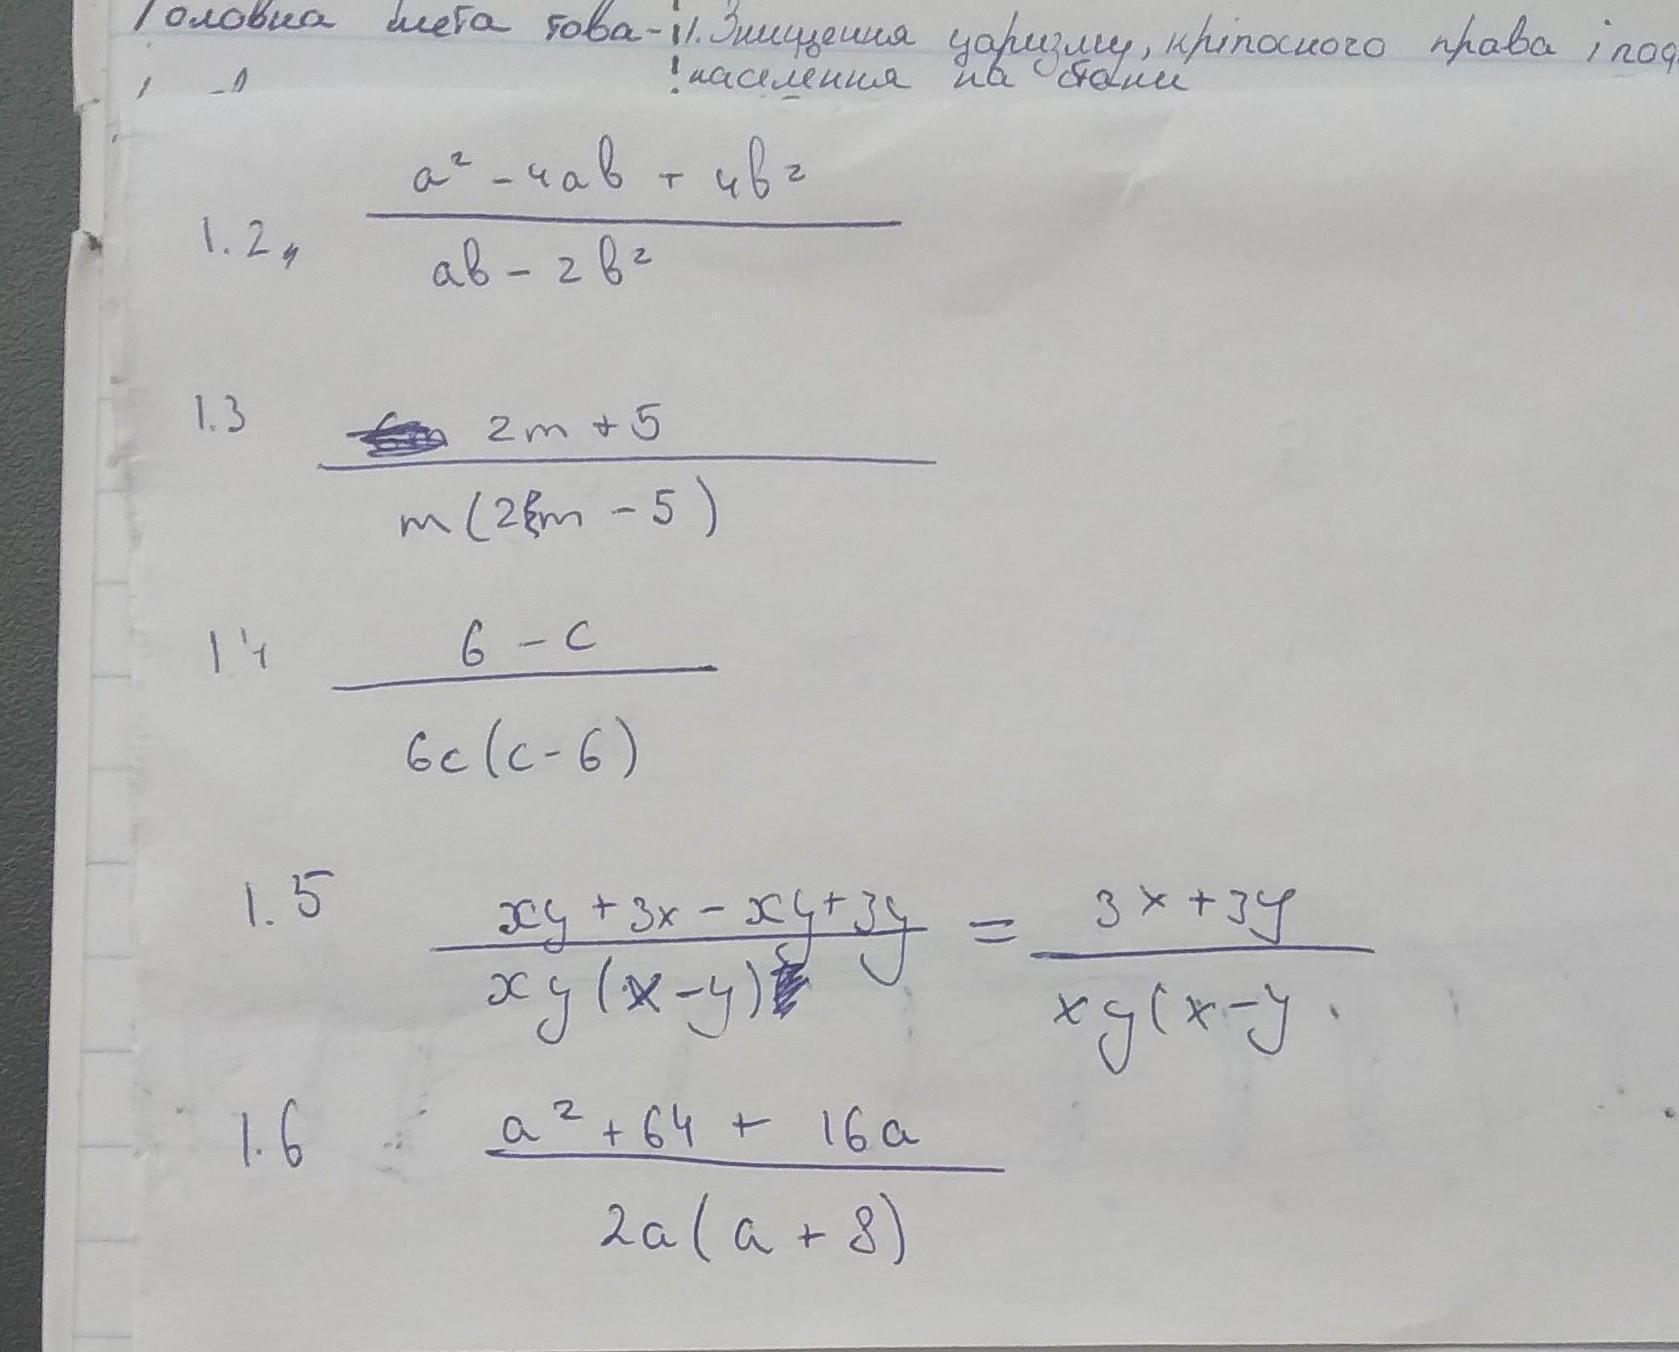 Головна мета това- 1. Знищення царизму, кріпосного права і под
населення на стани
1.2, a² - 4ab + 4b²
ab - 2b²
1.3 2m + 5
m(2m - 5)
1.4 6 - c
6c(c - 6)
1.5 xy + 3x - xy + 3y = 3x + 3y
xy(x - y) xy(x - y
1.6 a² + 64 + 16a
2a(a + 8)